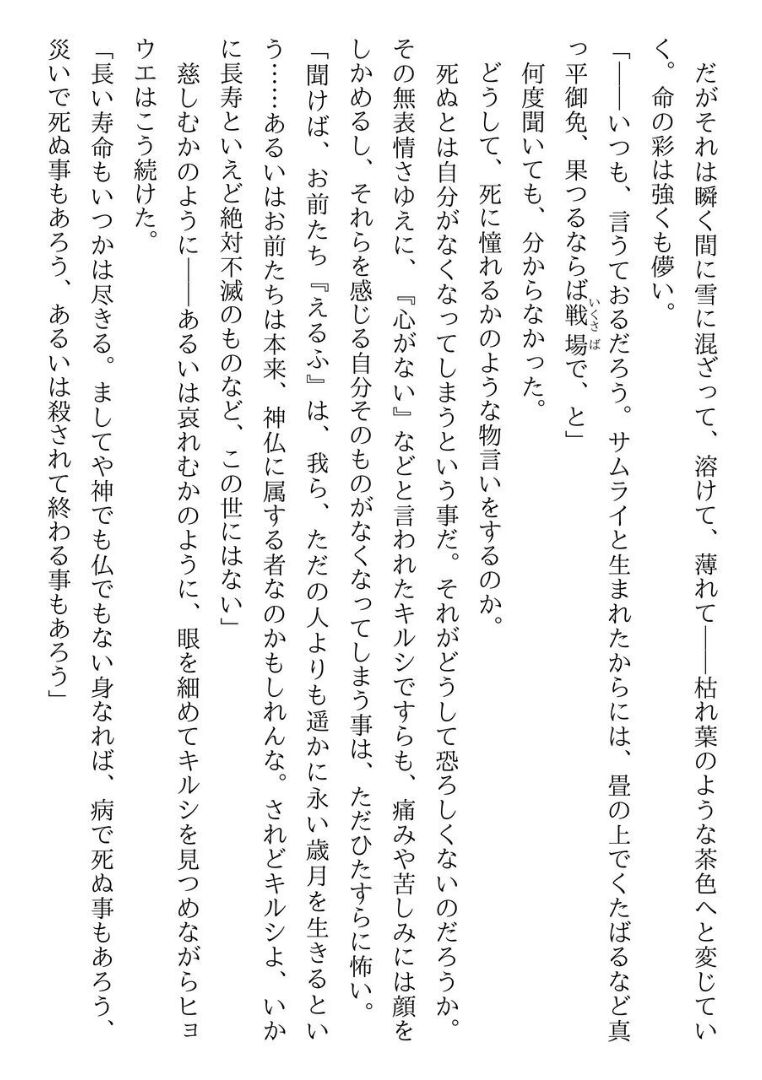 だがそれは瞬く間に雪に混ざって、溶けて、薄れて――枯れ葉のような茶色へと変じてい
く。命の彩は強くも儚い。
「――いつも、言うておるだろう。サムライと生まれたからには、畳の上でくたばるなど真
っ平御免、果つるならば戦場で、と」
何度聞いても、分からなかった。
どうして、死に憧れるかのような物言いをするのか。
死ぬとは自分がなくなってしまうという事だ。それがどうして恐ろしくないのだろうか。
その無表情さゆえに、『心がない』などと言われたキルシですらも、痛みや苦しみには顔を
しかめるし、それらを感じる自分そのものがなくなってしまう事は、ただひたすらに怖い。
「聞けば、お前たち『えるふ』は、我ら、ただの人よりも遥かに永い歳月を生きるとい
う……あるいはお前たちは本来、神仏に属する者なのかもしれんな。されどキルシよ、いか
に長寿といえど絶対不滅のものなど、この世にはない」
慈しむかのように――あるいは哀れむかのように、眼を細めてキルシを見つめながらヒョ
ウエはこう続けた。
「長い寿命もいつかは尽きる。ましてや神でも仏でもない身なれば、病で死ぬ事もあろう、
災いで死ぬ事もあろう、あるいは殺されて終わる事もあろう」
いくさば